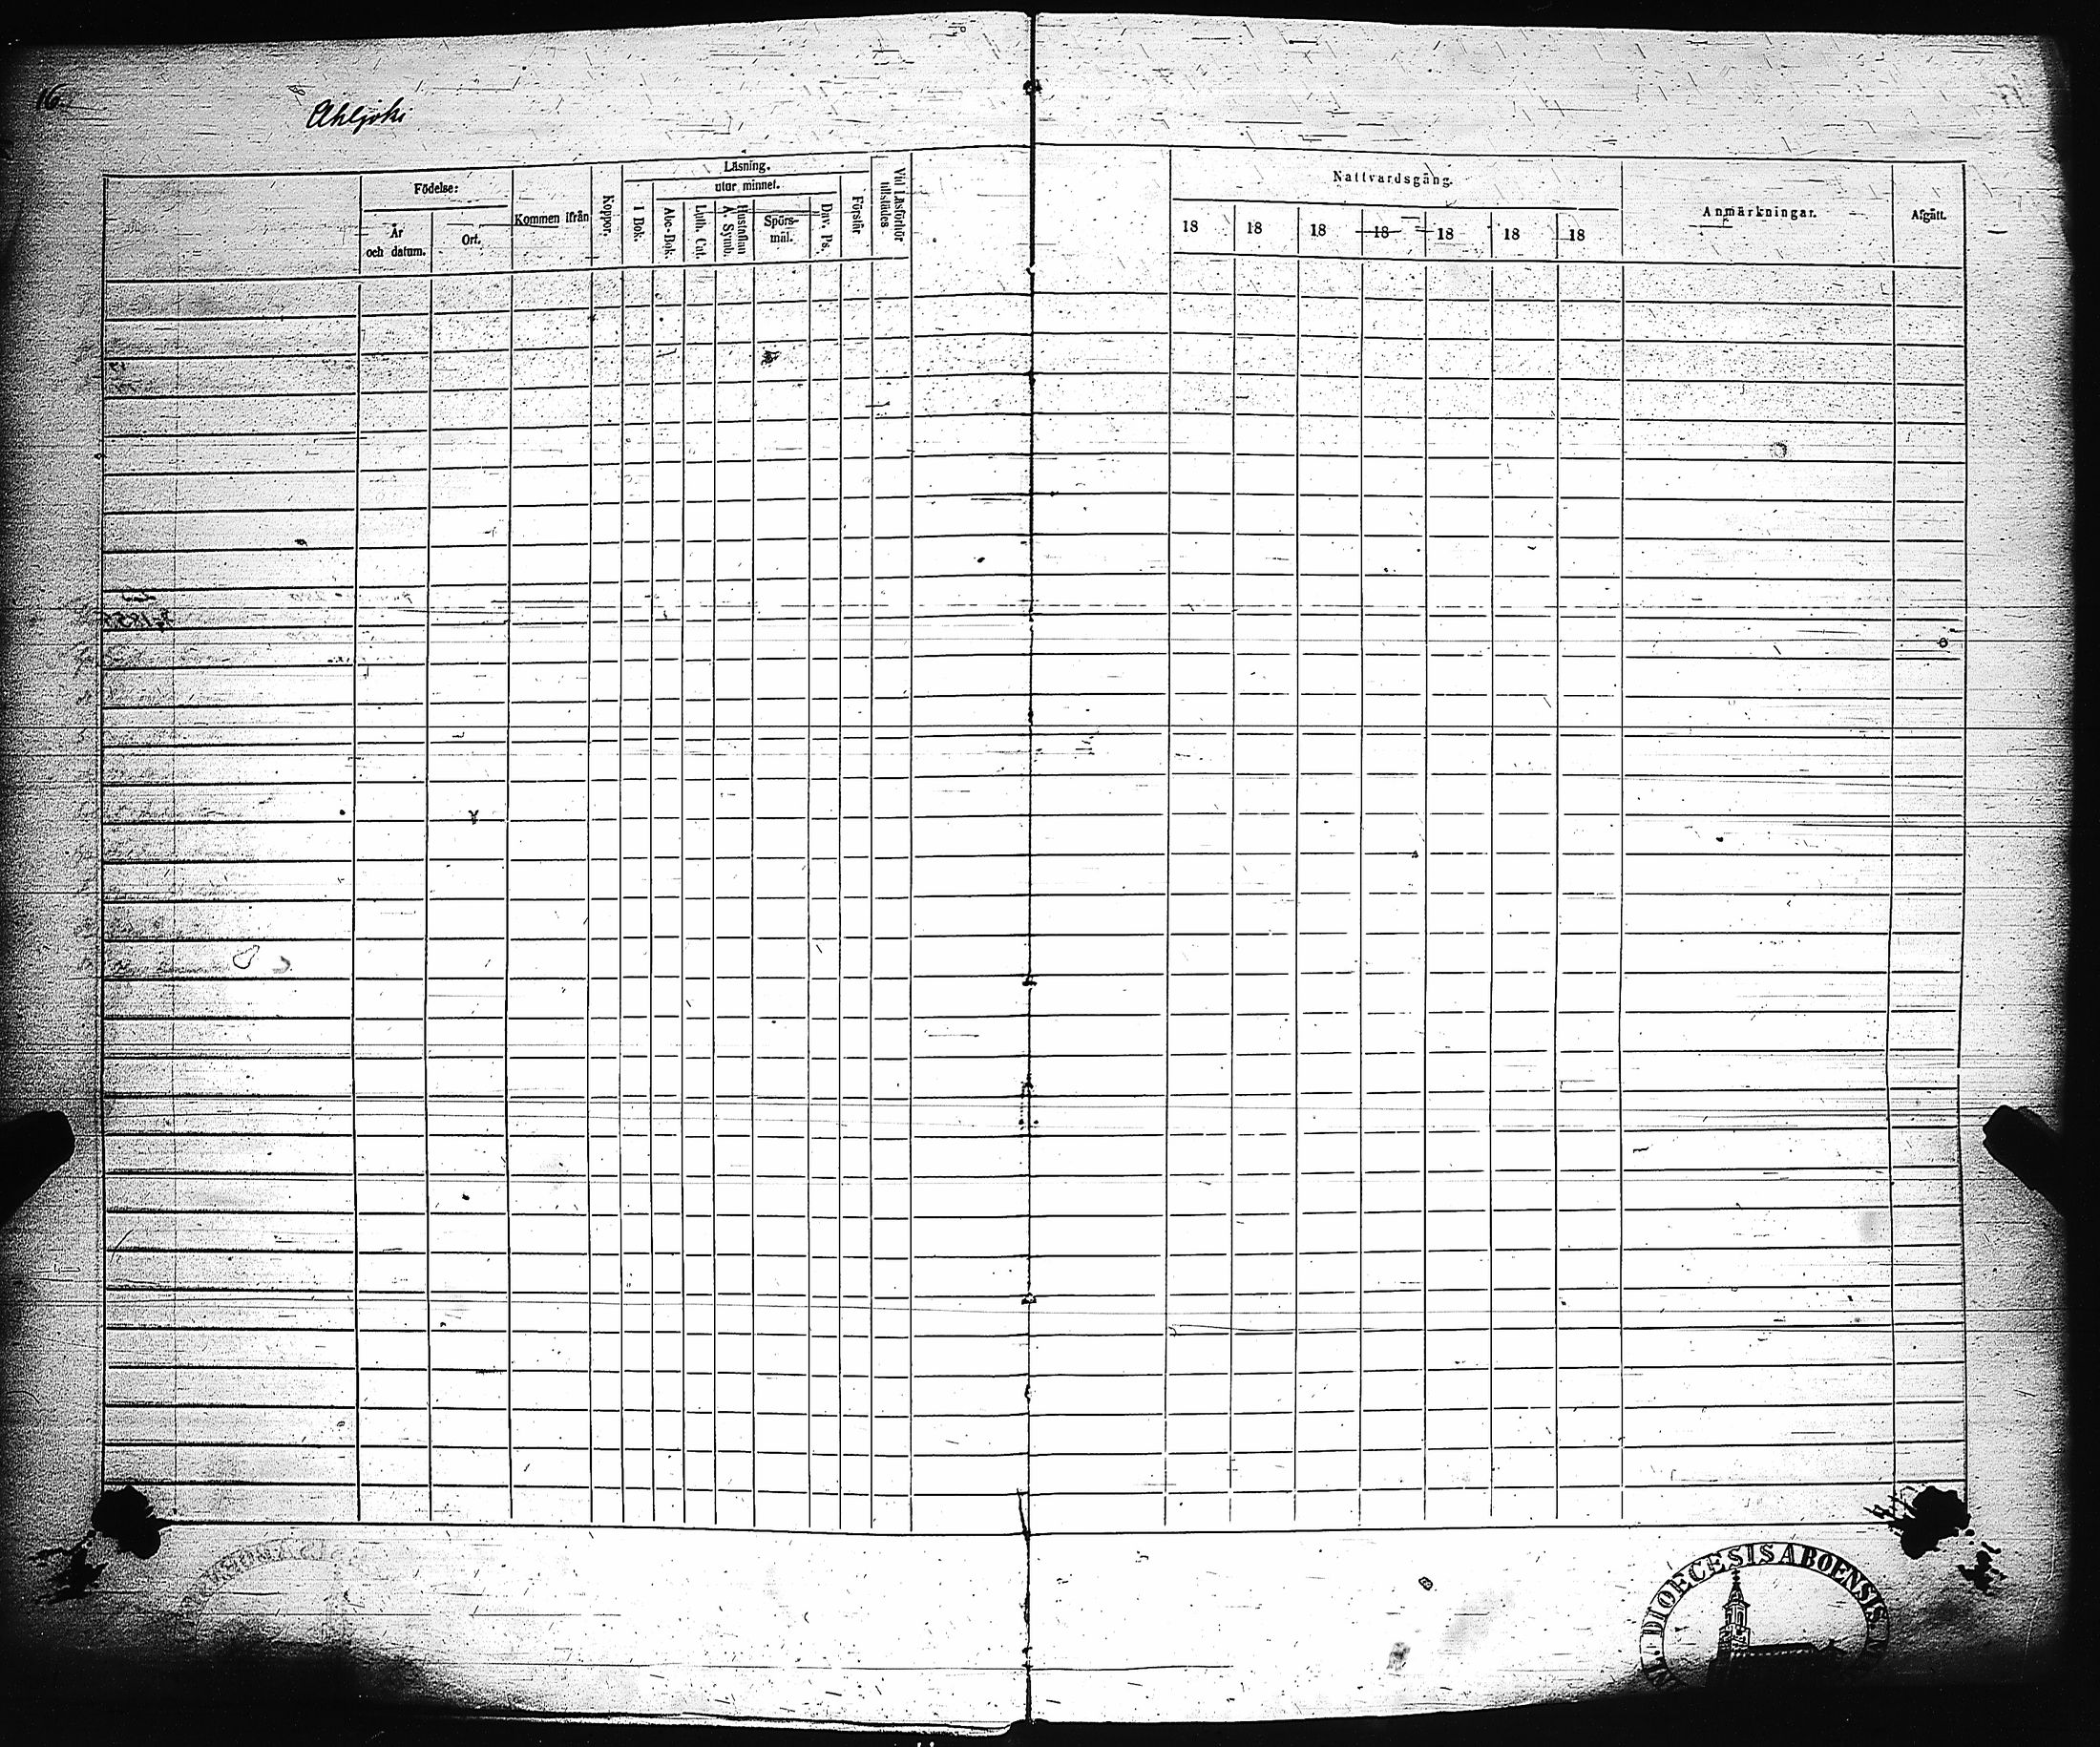 16
Ahljoki
Födelse:
År
och datum.
Ort.
Kommen ifrån
Koppor.
Läsning.
I Bok.
utur minnet.
Abc-Bok.
Luth. Cat.
Hustaflan
A. Symb.
Spörs-
mål.
Dav. Ps.
Förstår
Vid Läsförhör
tillstädes
Nattvardsgång.
18 18 18 18 18 18 18
Anmärkningar.
Afgått.
DIOECESIS ABOENSIS